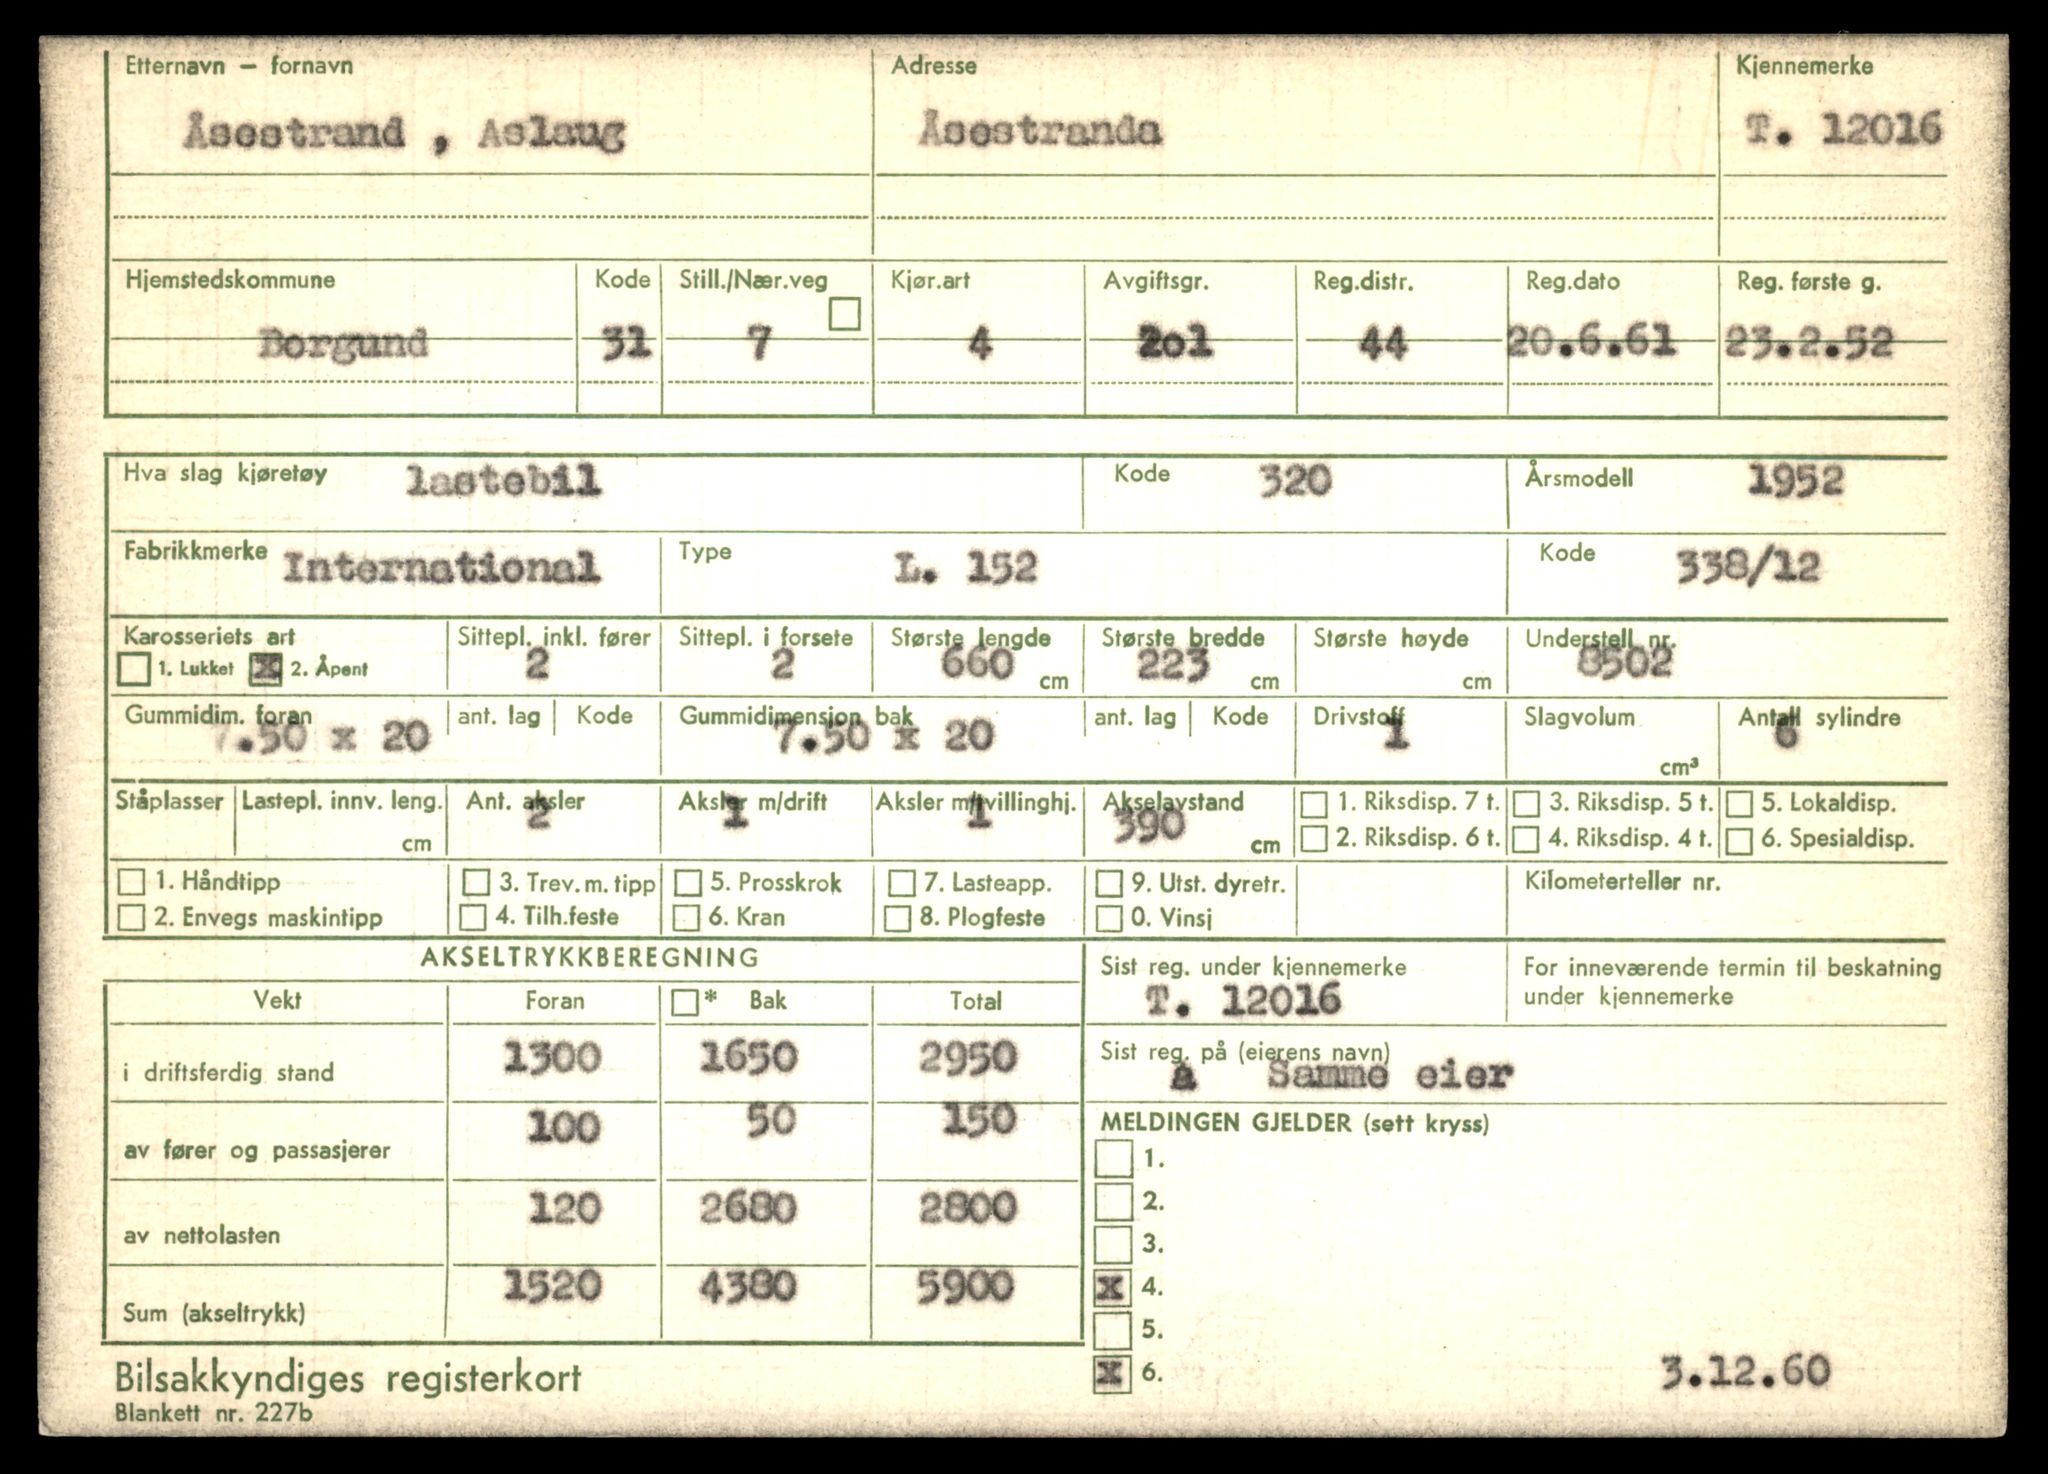 Etternavn – fornavn Adresse Kjennemerke
Åsestrand , Aslaug Åsestranda T. 12016
Hjemstedskommune Kode Still./Nær.veg Kjør.art Avgiftsgr. Reg.distr. Reg.dato Reg. første g.
Borgund 31 7 4 2o1 44 20.6.61 23.2.52
Hva slag kjøretøy lastebil Kode 320 Årsmodell 1952
Fabrikkmerke International Type L. 152 Kode 338/12
Karosseriets art Sittepl. inkl. fører Sittepl. i forsete Største lengde Største bredde Største høyde Understell nr.
1. Lukket X 2. Åpent 2 2 660 cm 223 cm cm 8502
Gummidim. foran ant. lag Kode Gummidimensjon bak ant. lag Kode Drivstoff Slagvolum Antall sylindre
7.50 x 20 7.50 x 20 1 cm³ 6
Ståplasser Lastepl. innv. leng. Ant. aksler Aksler m/drift Aksler m/tvillinghj. Akselavstand 1. Riksdisp. 7 t. 3. Riksdisp. 5 t. 5. Lokaldisp.
cm 2 1 1 390 cm 2. Riksdisp. 6 t. 4. Riksdisp. 4 t. 6. Spesialdisp.
1. Håndtipp 3. Trev. m. tipp 5. Prosskrok 7. Lasteapp. 9. Utst. dyretr. Kilometerteller nr.
2. Envegs maskintipp 4. Tilh.feste 6. Kran 8. Plogfeste 0. Vinsj
AKSELTRYKKBEREGNING
Vekt Foran * Bak Total
i driftsferdig stand 1300 1650 2950
av fører og passasjerer 100 50 150
av nettolasten 120 2680 2800
Sum (akseltrykk) 1520 4380 5900
Sist reg. under kjennemerke
T. 12016
For inneværende termin til beskatning
under kjennemerke
Sist reg. på (eierens navn)
a Samme eier
MELDINGEN GJELDER (sett kryss)
1.
2.
3.
X 4.
5.
X 6.
3.12.60
Bilsakkyndiges registerkort
Blankett nr. 227b